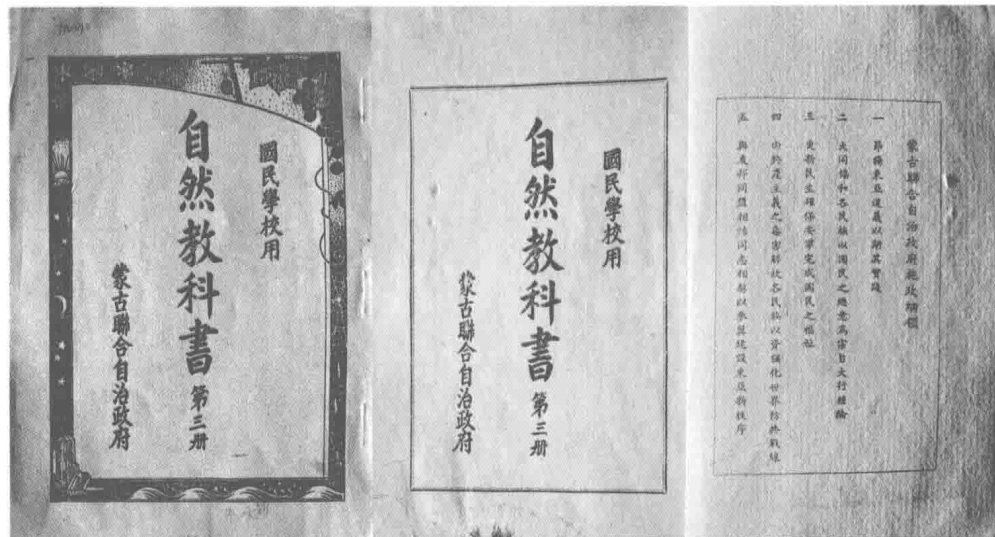 國民學校用
自然教科書 第三册
蒙古聯合自治政府
國民學校用
自然教科書 第三册
蒙古聯合自治政府
蒙古聯合自治政府施政綱領
一 昂揚東亞道義以期其實踐
二 大同協和各民族以國民之總意為宗旨大行經綸
三 更新民生確保安寧完成國民之福祉
四 由於共主義之毒害解放各民族以資強化世界防共戰線
五 與友邦同盟相結同志相契以參與建設東亞新秩序